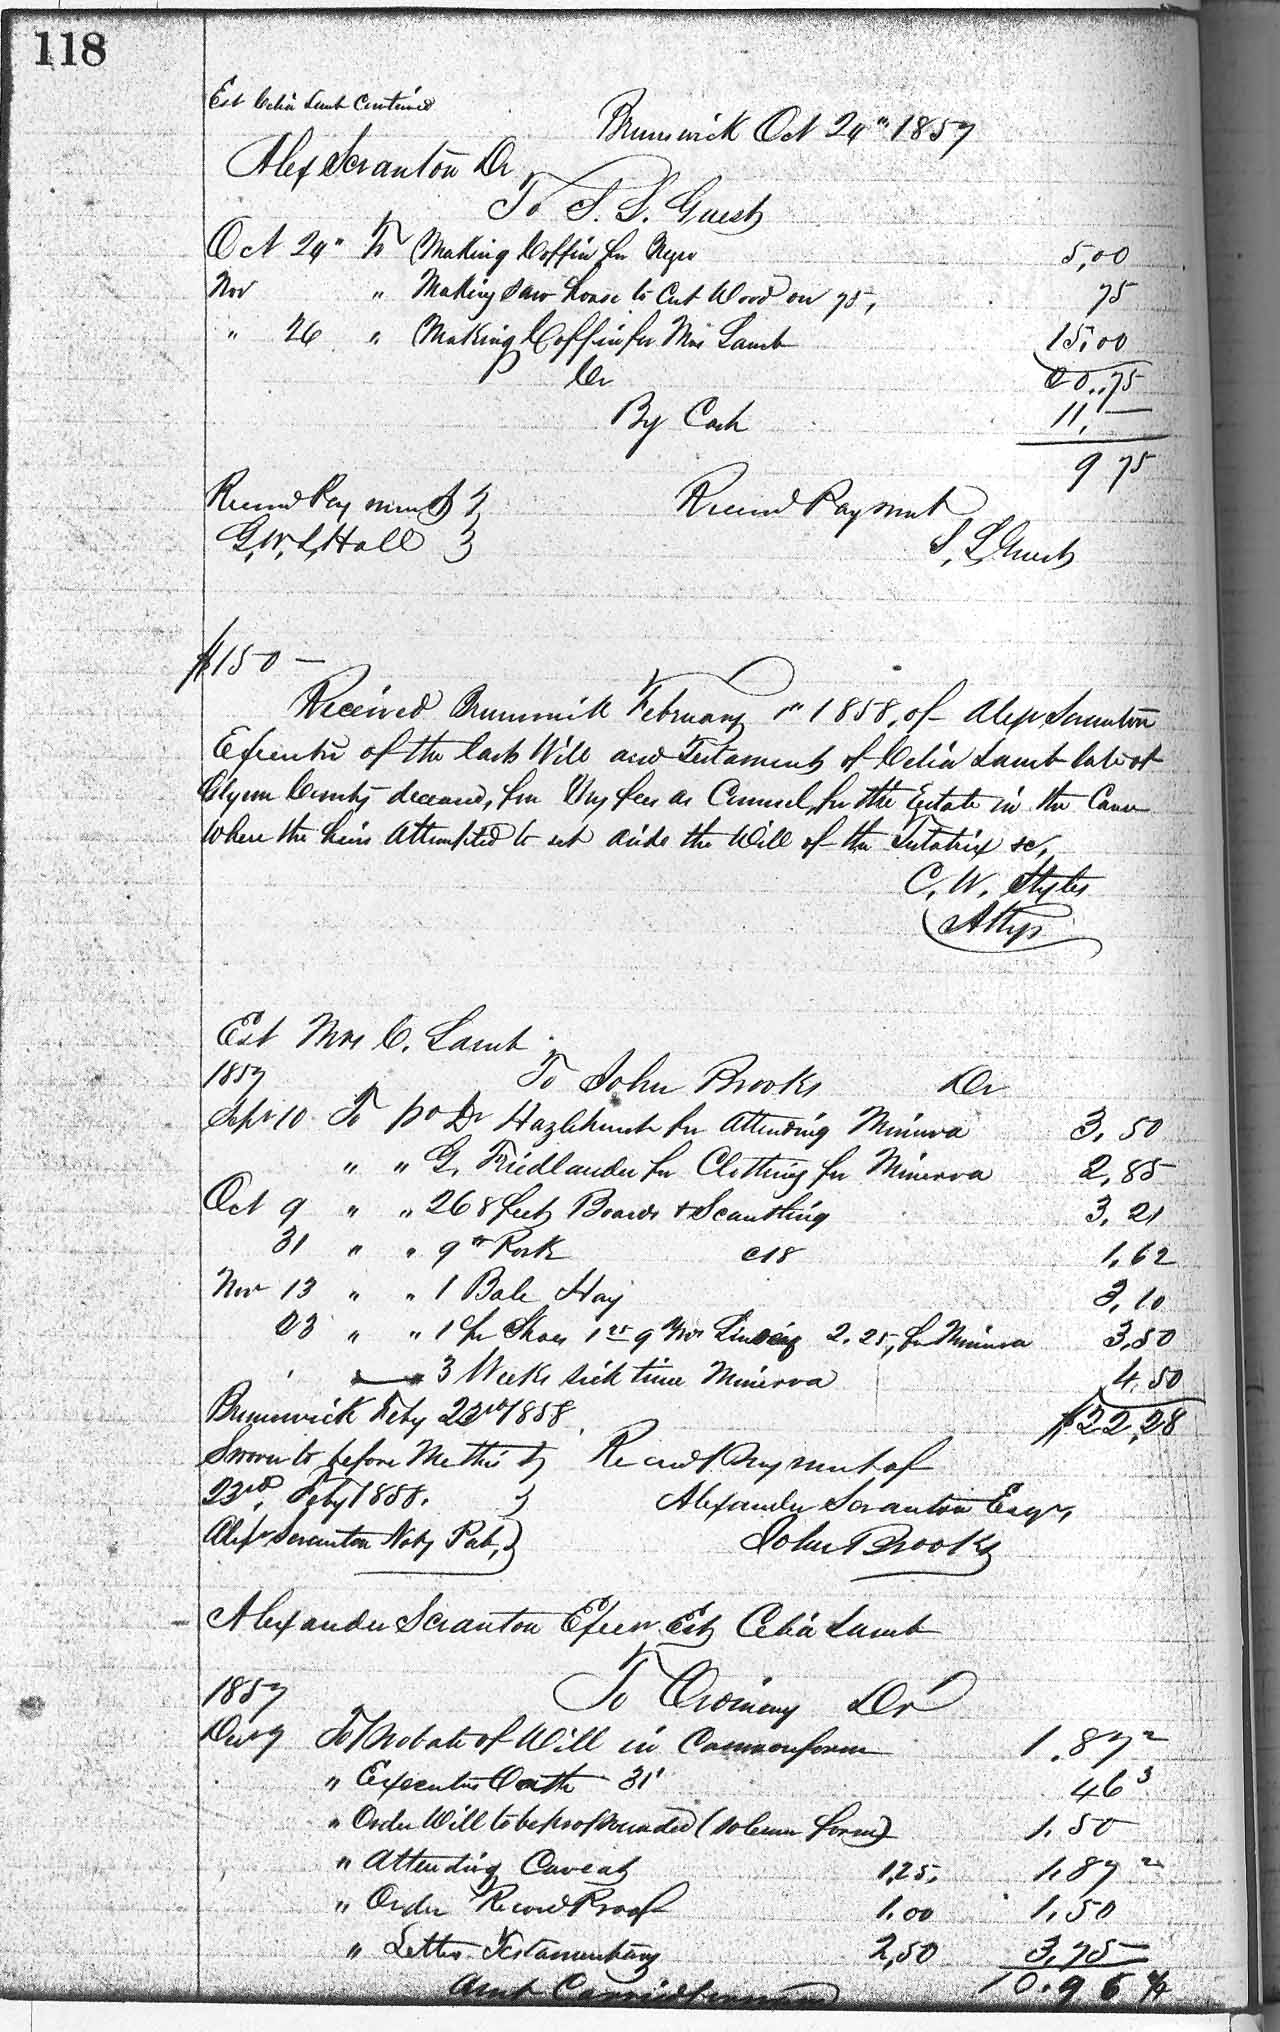 118
Est Celia Lamb Continued
Brunswick Oct 24th 1857
Alex Scranton Dr
To S. L. Guest
Oct 24" To Making Coffin for Negro 5,00
Nov " Making Saw horse to Cut Wood on 75, 75
" 26 " Making Coffin for Mrs Lamb 15,00
20,,75
Cr
By Cash 11,—
9 75
Received Payment
G. W. L. Hall
Received Payment
S. L. Guest
$150—
Received Brunswick February 1st 1858, of Alexr Scranton
Executor of the last Will and Testament of Celia Lamb late of
Glynn County deceased, for My fees as Counsel for the Estate in the Case
Where the heirs Attempted to set aside the Will of the Testatrix &c,
C. W. Styles
Atty
Est Mrs C. Lamb
1857 To John Brooks Dr
Sept 10 To pd Dr Hazlehurst for Attending Minerva 3,50
" " G. Friedlander for Clothing for Minerva 2,85
Oct 9 " " 268 feet Boards & Scantling 3,21
31 " " 9 lb Pork c18 1,62
Nov 13 " " 1 Bale Hay 3,10
23 " " 1 pr Shoes 1 25 9 yds Linsey 2.25, for Minerva 3,50
" 3 Weeks sick time Minerva 4,50
Brunswick Feby 23rd 1858 $22,28
Sworn to before Me this Received Payment of
23rd, Feby 1858. Alexander Scranton Esqr,
Alexr Scranton Noty Pub, John Brooks
Alexander Scranton Execr Est Celia Lamb
1857 To Ordinary Dr
Dec 7 To Probate of Will in Common form 1.87 2
" Executors Oath 31 46 3
" Order Will to be propounded (solemn form) 1.50
" Attending Caveat 1,25. 1.87 2
" Order Record Proof 1.00 1,50
" Letters Testamentary 2,50 3,75
Amt Carried forward 10.96 3/4